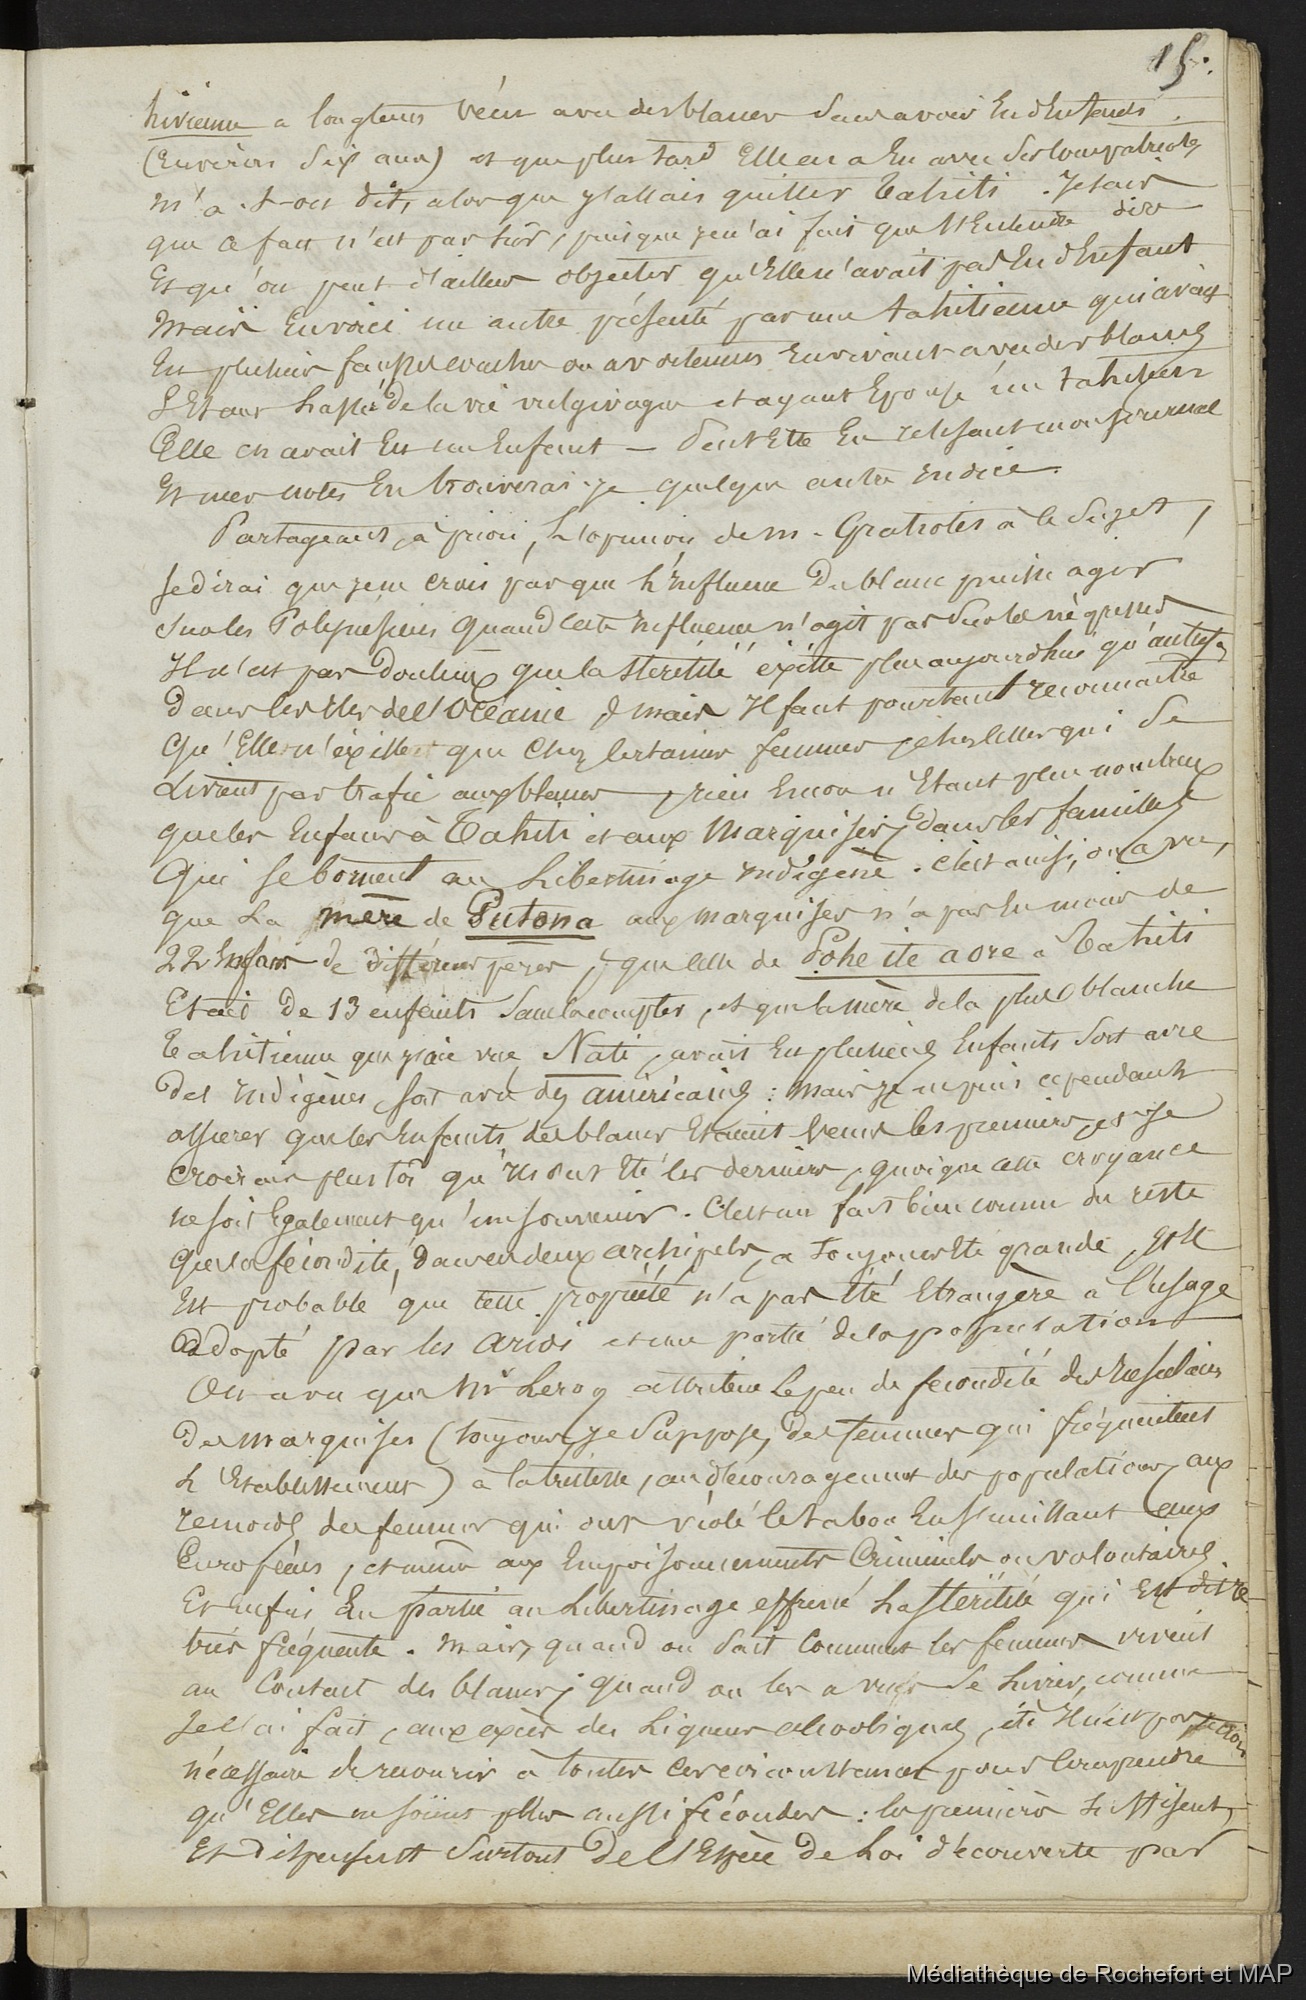 15.
hivienne a longtems vécu avec des blancs sans avoir eu d'Enfants.
(Environ dix ans) et que plus tard Elle en a Eu avec des compatriotes
m'a-t-on dit, alors que j'allais quitter Tahiti. Je sais
que ce fait n'est pas sûr, puisque je n'ai fait que l'Entendre dire
Et qu'on peut d'ailleurs objecter qu'Elle n'avait pas Eu d'Enfant
Mais En voici un autre présenté par une tahitienne qui avait
Eu plusieurs fausses couches ou avortemens En vivant avec des blancs
S'Etant lassée de la vie vulgivague et ayant Epousé un tahitien
Elle en avait Eu un Enfant — Peut Etre En relisant mon journal
Et mes notes En trouverai-je quelque autre Indice.
Partageant, à priori, L'opinion de M. Gratiolet à ce Sujet,
Je dirai que je ne crois pas que L'Influence Du blanc puisse agir
Sur les Polynésiens quand cette Influence n'agit pas sur les négresses
Il n'est pas Douteux que la Stérilité éxiste plus aujourd'hui qu'autrefois
Dans les Iles de l'Océanie, mais Il faut pourtant reconnaitre
Qu'Elle n'éxiste que Chez certaines femmes, chez celles qui Se
Livrent par trafic aux blancs, rien Encore n'Etant plus nombreux
que les Enfans à Tahiti et aux Marquises, dans les familles
Qui Se bornent au Libertinage Indigène. C'est ainsi, on a vu,
que La mère de Putona aux marquises n'a pas Eu moins de
22 Enfans de différens pères, que celle de Pohe ite aore à Tahiti
Etait De 13 enfants Sans la compter, et que la mère de la plus blanche
Tahitienne que j'aie vue, Nati, avait Eu plusieurs Enfants soit avec
Des Indigènes, soit avec des américains : mais je ne puis cependant
assurer que les Enfants des blancs Etaient venus les premiers, et je
croirais plus tôt qu'Ils ont Eté les derniers, quoique cette croyance
ne soit Egalement qu'un souvenir. C'est un fait bien connu du reste
Que la fécondité, dans ces deux archipels, a toujours Eté grande, Et Il
Est probable que cette propriété n'a pas Eté Etrangère à l'Usage
adopté par les arioi et une partie de la population
On a vu que Mr Leroy attribue Le peu de fécondité des Insulaires
Des marquises (toujours, je Suppose, des femmes qui fréquentent
L'Etablissement) à la tristesse, au découragement des populations, aux
remords des femmes qui ont violé le tabou En s'unissant aux
Européens, et même aux Empoisonnements Criminels ou volontaires.
Et Enfin En partie au Libertinage effréné La Stérilité qui Est dit-il
très fréquente. Mais, quand on Sait Comment les femmes vivent
au Contact des blancs, quand on les a vues Se Livrer, comme
Je l'ai fait, aux excès des Liqueurs alcooliques, Il n'est pas, je crois
nécessaire de recourir à toutes ces circonstances pour Comprendre
qu'Elles ne soient plus aussi fécondes : les premières Suffisent,
Et Dispensent Surtout De l'Espèce De Loi découverte par
Médiathèque de Rochefort et MAP